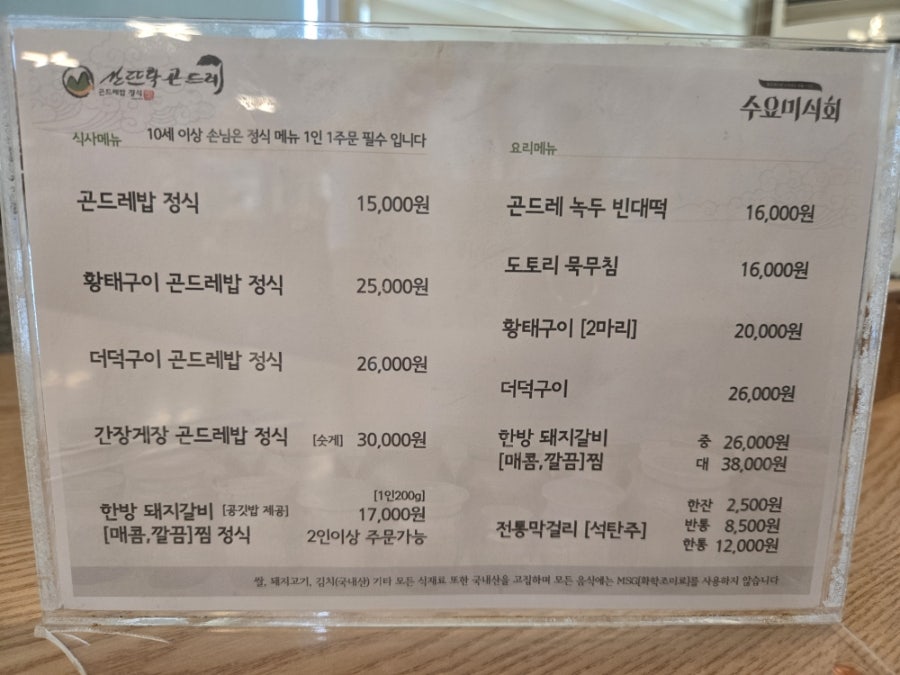 산뜨락곤드레
곤드레밥 정식
수요미식회
식사메뉴 10세 이상 손님은 정식 메뉴 1인 1주문 필수 입니다
곤드레밥 정식 15,000원
황태구이 곤드레밥 정식 25,000원
더덕구이 곤드레밥 정식 26,000원
간장게장 곤드레밥 정식 [숫게] 30,000원
[1인200g]
한방 돼지갈비 [공깃밥 제공] 17,000원
[매콤,깔끔]찜 정식 2인이상 주문가능
요리메뉴
곤드레 녹두 빈대떡 16,000원
도토리 묵무침 16,000원
황태구이 [2마리] 20,000원
더덕구이 26,000원
한방 돼지갈비 중 26,000원
[매콤,깔끔]찜 대 38,000원
한잔 2,500원
전통막걸리 [석탄주] 반통 8,500원
한통 12,000원
쌀, 돼지고기, 김치(국내산) 기타 모든 식재료 또한 국내산을 고집하며 모든 음식에는 MSG[화학조미료]를 사용하지 않습니다